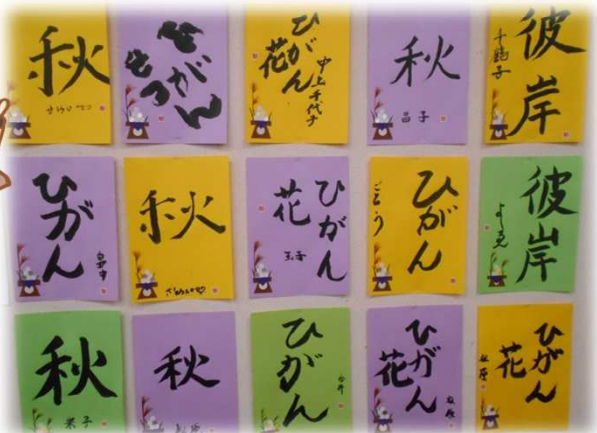 秋
ひがん
ひがん
花
中上千代子
秋
昌子
彼岸
千鶴子
ひがん
秋
ひがん
花
玉子
ひがん
ごとう
彼岸
秋
米子
秋
ひがん
ひがん
花
ひがん
花